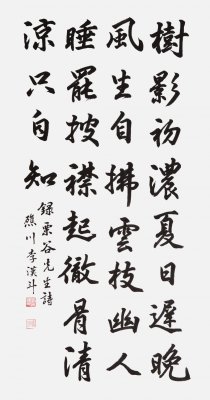 樹影初濃夏日遲晩
風生自拂雲枝幽人
睡罷披襟起徹骨清
涼只自知
錄栗谷先生詩
川李漢斗